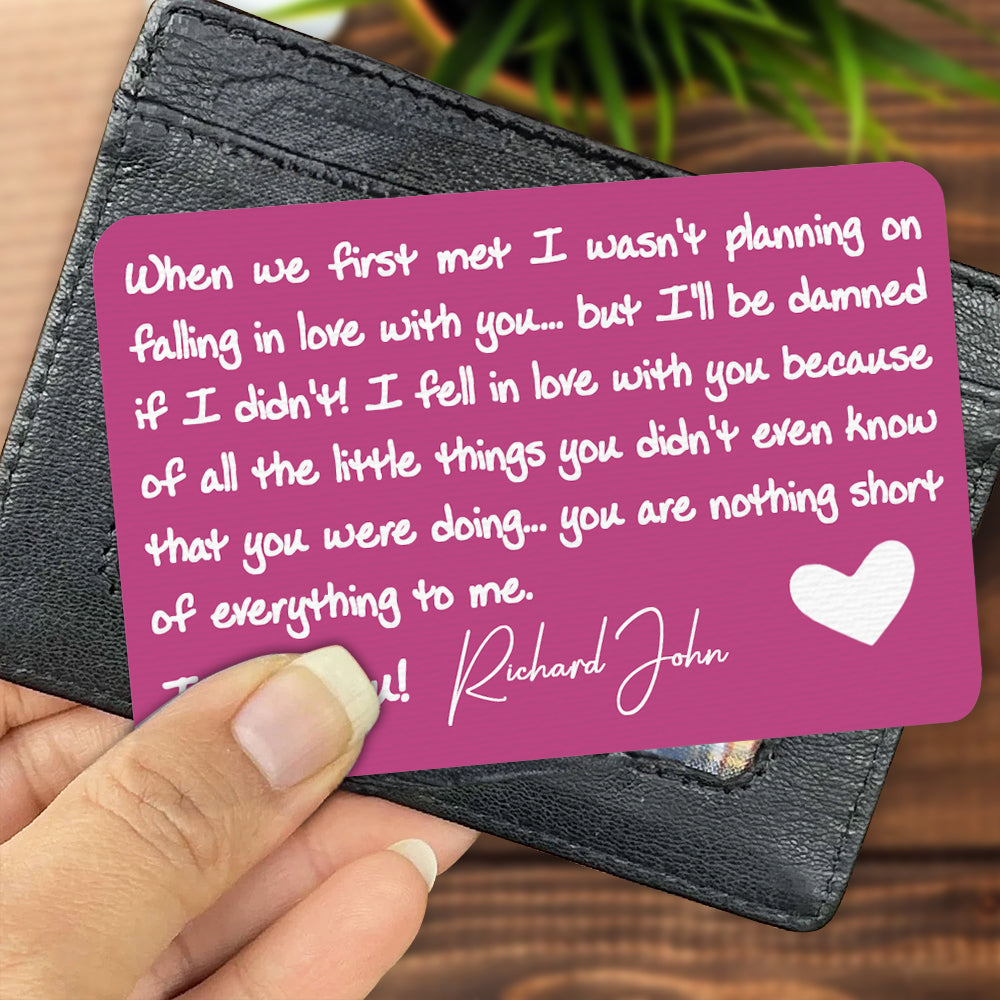 When we first met I wasn't planning on
falling in love with you... but I'll be damned
if I didn't! I fell in love with you because
of all the little things you didn't even know
that you were doing... you are nothing short
of everything to me.
I
Richard John